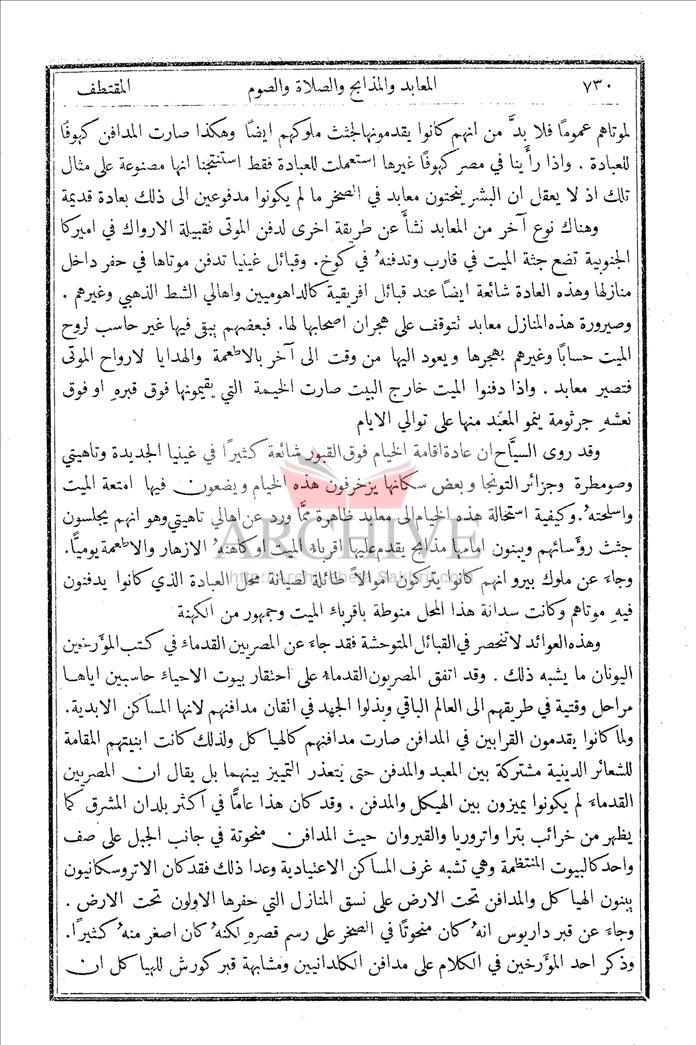 ٧٣٠ المعابد والمذابح والصلاة والصوم المقتطف
لموتاهم عموماً فلا بدَّ من انهم كانوا يقدمونها لجثث ملوكهم ايضاً وهكذا صارت المدافن كهوفًا
للعبادة . واذا رأينا في مصر كهوفًا غيرها استعملت للعبادة فقط استنتجنا انها مصنوعة على مثال
تلك اذ لا يعقل ان البشر ينحتون معابد في الصخر ما لم يكونوا مدفوعين الى ذلك بعادة قديمة
وهناك نوع آخر من المعابد نشأ عن طريقة اخرى لدفن الموتى فقبيلة الارواك في اميركا
الجنوبية تضع جثة الميت في قارب وتدفنهُ في كوخ. وقبائل غينيا تدفن موتاها في حفر داخل
منازلها وهذه العادة شائعة ايضاً عند قبائل افريقية كالداهوميين واهالي الشط الذهبي وغيرهم .
وصيرورة هذه المنازل معابد تتوقف على هجران اصحابها لها. فبعضهم يبقى فيها غير حاسب لروح
الميت حسابًا وغيرهم يهجرها ويعود اليها من وقت الى آخر بالاطعمة والهدايا لارواح الموتى
فتصير معابد . واذا دفنوا الميت خارج البيت صارت الخيمة التي يقيمونها فوق قبرهِ او فوق
نعشهِ جرثومة ينمو المعبَد منها على توالي الايام
وقد روى السيَّاح ان عادة اقامة الخيام فوق القبور شائعة كثيرًا في غينيا الجديدة وتاهيتي
وصومطرة وجزائر التونجا وبعض سكانها يزخرفون هذه الخيام ويضعون فيها امتعة الميت
واسلحتهُ. وكيفية استحالة هذه الخيام الى معابد ظاهرة ممَّا ورد عن اهالي تاهيتي وهو انهم يجلسون
جثث رؤسائهم ويبنون امامها مذابح يقدم عليها اقرباء الميت او كاهنهُ الازهار والاطعمة يومياً.
وجاء عن ملوك بيرو انهم كانوا يتركون اموالاً طائلة لصيانة محل العبادة الذي كانوا يدفنون
فيهِ موتاهم وكانت سدانة هذا المحل منوطة باقرباء الميت وجمهور من الكهنة
وهذه العوائد لا تنحصر في القبائل المتوحشة فقد جاء عن المصريين القدماء في كتب المؤرخين
اليونان ما يشبه ذلك . وقد اتفق المصريون القدماء على احتقار بيوت الاحياء حاسبين اياها
مراحل وقتية في طريقهم الى العالم الباقي وبذلوا الجهد في اتقان مدافنهم لانها المساكن الابدية.
ولما كانوا يقدمون القرابين في المدافن صارت مدافنهم كالهياكل ولذلك كانت ابنيتهم المقامة
للشعائر الدينية مشتركة بين المعبد والمدفن حتى يتعذر التمييز بينهما بل يقال ان المصريين
القدماء لم يكونوا يميزون بين الهيكل والمدفن . وقد كان هذا عامًا في اكثر بلدان المشرق كما
يظهر من خرائب بترا واتروريا والقيروان حيث المدافن منحوتة في جانب الجبل على صف
واحد كالبيوت المنتظمة وهي تشبه غرف المساكن الاعتيادية وعدا ذلك فقد كان الاتروسكانيون
يبنون الهياكل والمدافن تحت الارض على نسق المنازل التي حفرها الاولون تحت الارض .
وجاء عن قبر داريوس انهُ كان منحوتًا في الصخر على رسم قصرهِ لكنهُ كان اصغر منهُ كثيرًا.
وذكر احد المؤرخين في الكلام على مدافن الكلدانيين ومشابهة قبر كورش للهياكل ان
ARCHIVE
http://Archivebeta.Sakhrit.com